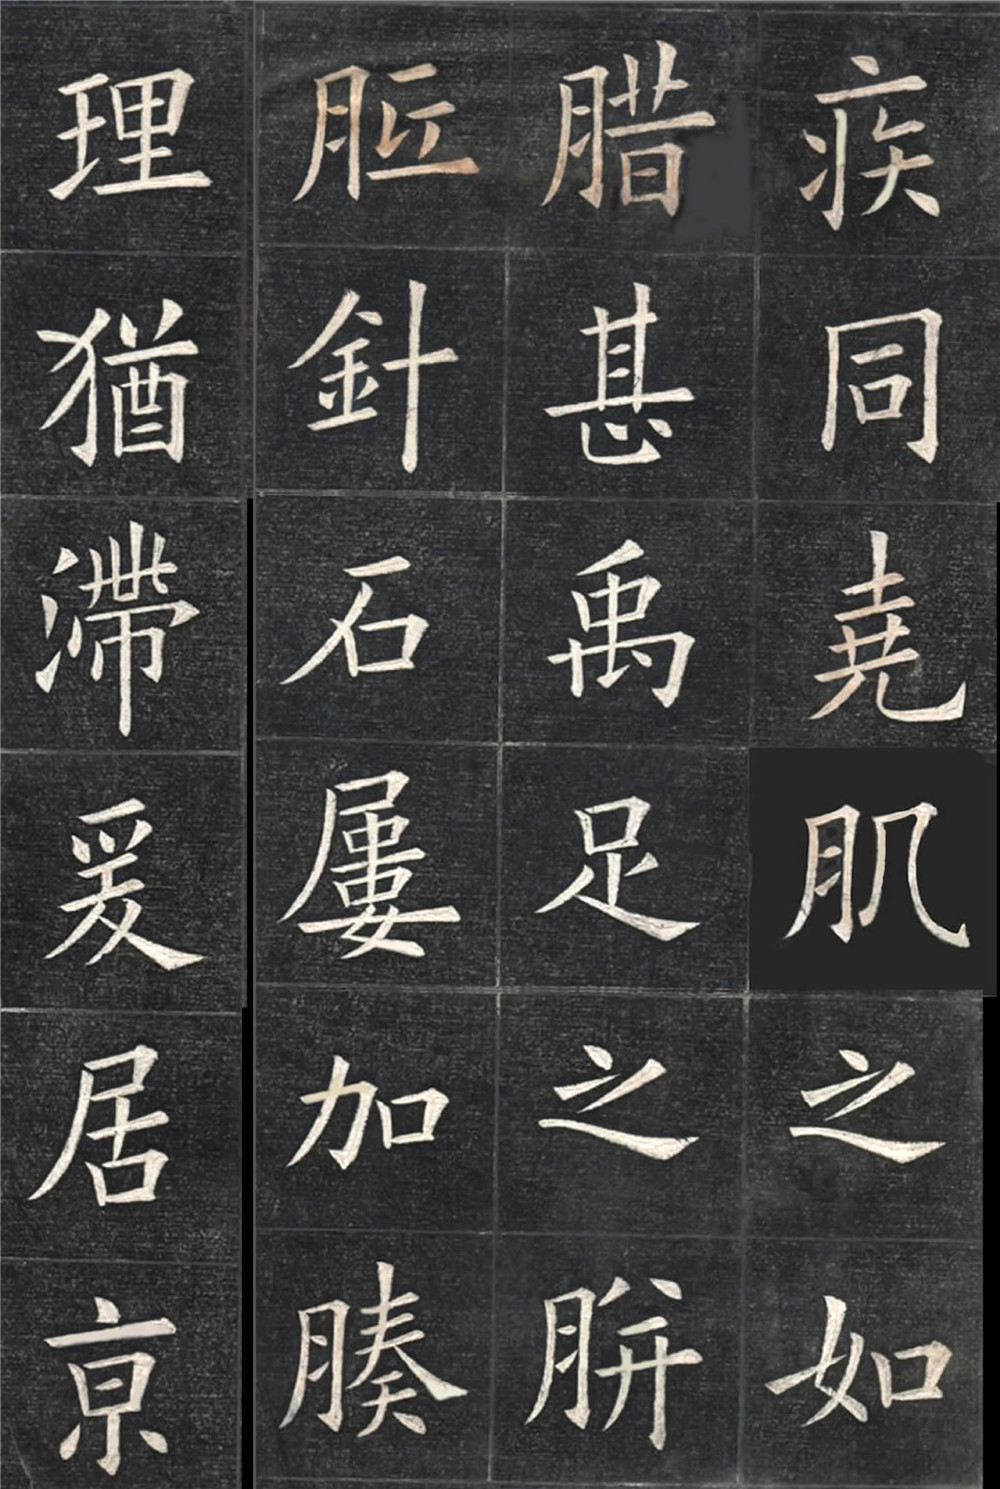 疾同堯肌之如
腊甚禹足之胼
胝針石屢加腠
理猶滯爰居京